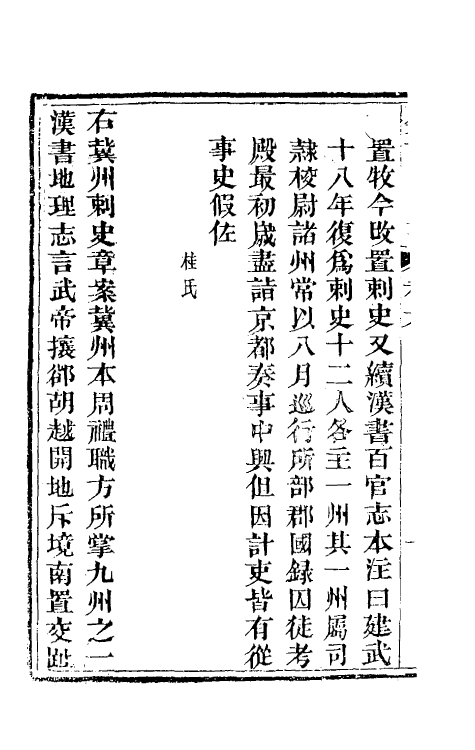 置牧今改置刺史又續漢書百官志本注曰建武
十八年復爲刺史十二人各主一州其一州屬司
隷校尉諸州常以八月巡行所部郡國錄囚徒考
殿最初歲盡詣京都奏事中興但因計吏皆有從
事史假佐
桂氏
右冀州刺史章案冀州本周禮職方所掌九州之一
漢書地理志言武帝攘郤胡越開地斥境南置交趾